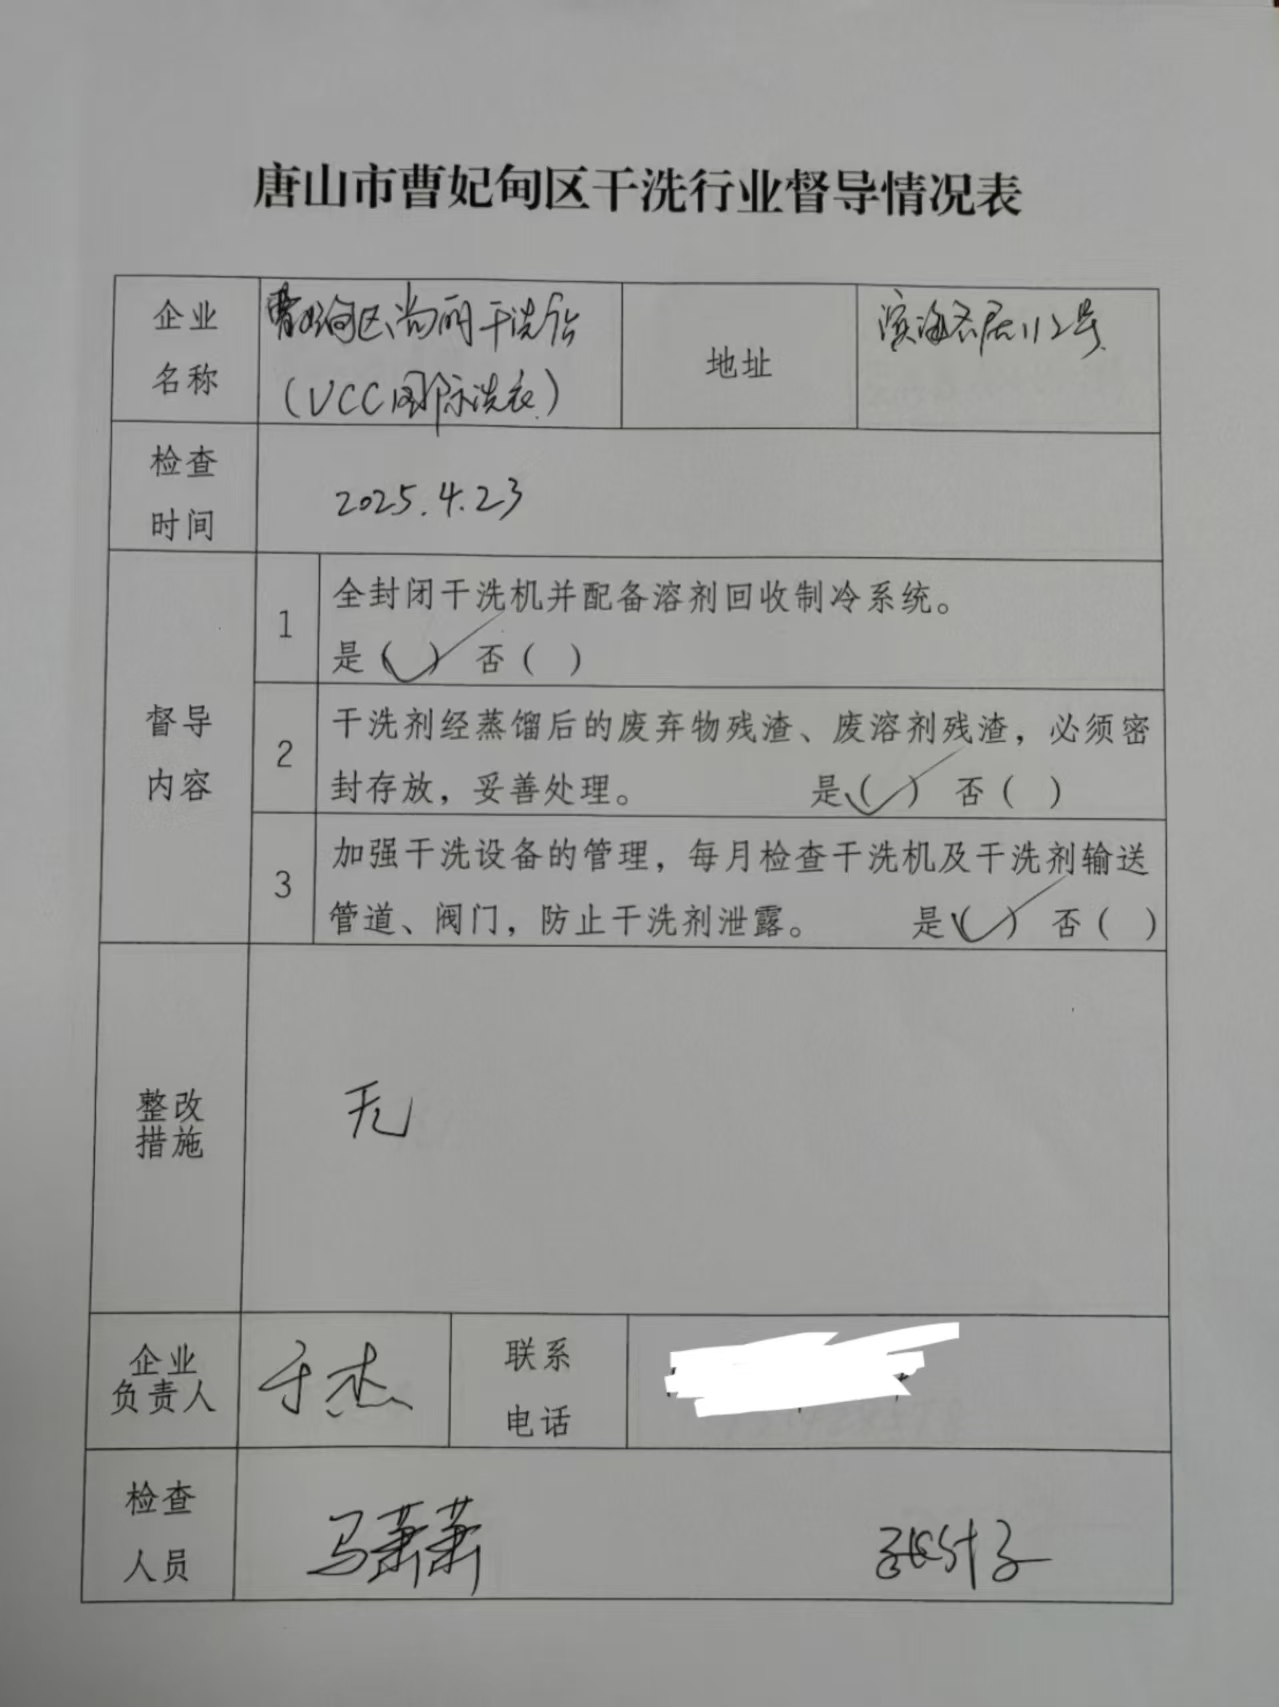 唐山市曹妃甸区干洗行业督导情况表
企业名称
曹妃甸区尚丽干洗店
(UCC国际洗衣)
地址
滨海名居112号
检查时间
2025.4.23
督导内容
1
全封闭干洗机并配备溶剂回收制冷系统。
是(✓) 否( )
2
干洗剂经蒸馏后的废弃物残渣、废溶剂残渣，必须密
封存放，妥善处理。 是(✓) 否( )
3
加强干洗设备的管理，每月检查干洗机及干洗剂输送
管道、阀门，防止干洗剂泄露。 是(✓) 否( )
整改措施
无
企业负责人
于杰
联系电话
检查人员
马萧萧